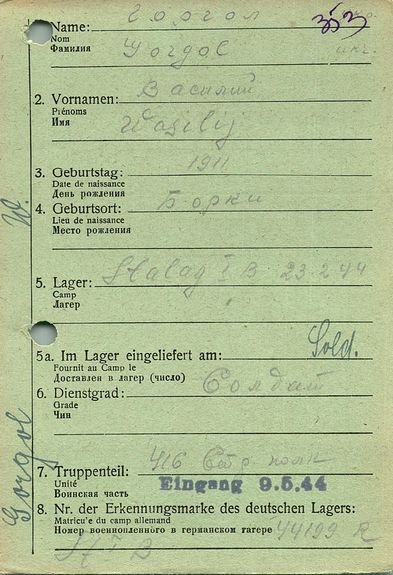 Горгол
353
1. Name:
Nom
Фамилия
Gorgol
Василий
2. Vornamen:
Prénoms
Имя
Wasilij
1911
3. Geburtstag:
Date de naissance
День рождения
Борки
4. Geburtsort:
Lieu de naissance
Место рождения
W.
5. Lager: Stalag I B 23.2.44
Camp
Лагер
5a. Im Lager eingeliefert am: Sold.
Fournit au Camp le
Доставлен в лагер (число)
6. Dienstgrad: Солдат
Grade
Чин
Gorgol
7. Truppenteil: 416 Стр. полк
Unité
Воинская часть
Eingang 9.5.44
8. Nr. der Erkennungsmarke des deutschen Lagers:
Matricu'e du camp allemand
Номер военнопленного в германском гагере 44199 R
St I B